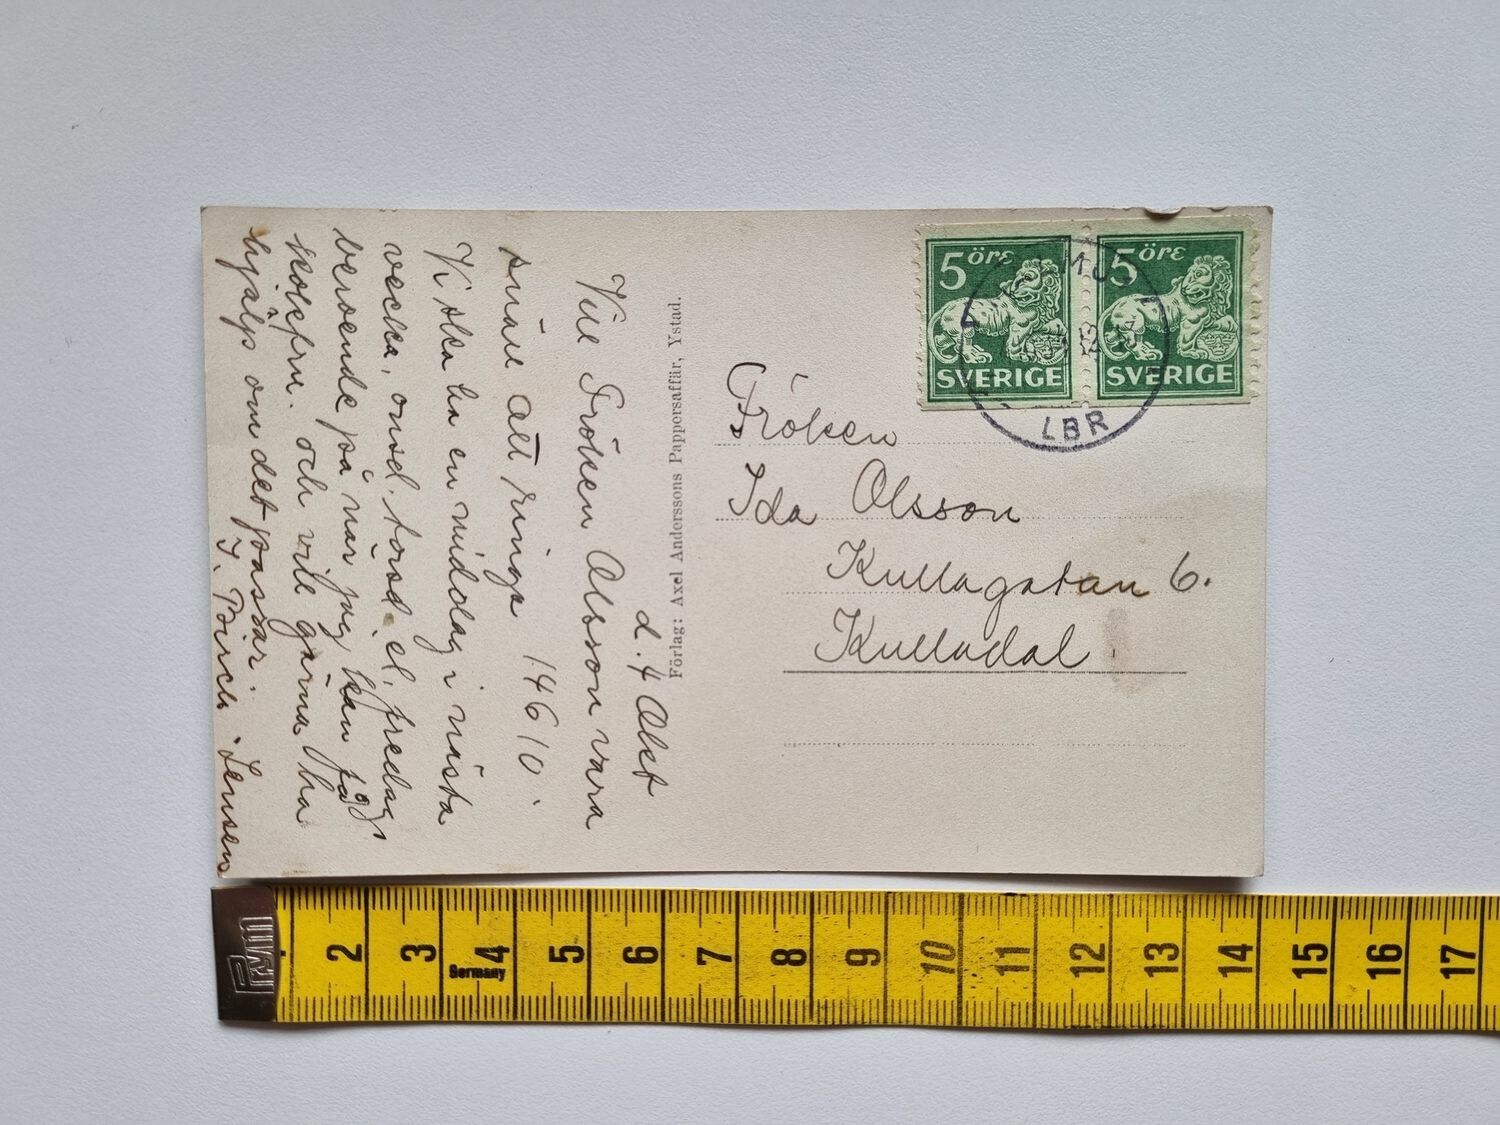 d. 4 Okt
Vill Fröken Olsson vara
snäll att ringa 14610.
Vi ska ha en middag i nästa
vecka, onsd. torsd. el. fredag,
beroende på när jag kan få
kokfru. och vill gärna ha
hjälp om det passar.
Förlag: Axel Anderssons Pappersaffär, Ystad.
5 öre 5 öre
SVERIGE SVERIGE
LBR
Fröken
Ida Olsson
Kullagatan 6.
Kulladal.
Prym
2 3 4 5 6 7 8 9 10 11 12 13 14 15 16 17
Germany